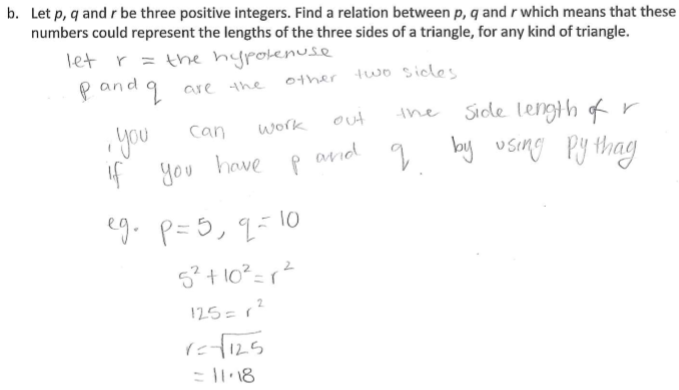 b. Let p, q and r be three positive integers. Find a relation between p, q and r which means that these
numbers could represent the lengths of the three sides of a triangle, for any kind of triangle.
let r = the hypotenuse
p and q are the other two sides
, you can work out the side length of r
if you have p and q by using pythag
eg. p=5, q=10
5² + 10² = r²
125 = r²
r=√125
= 11.18